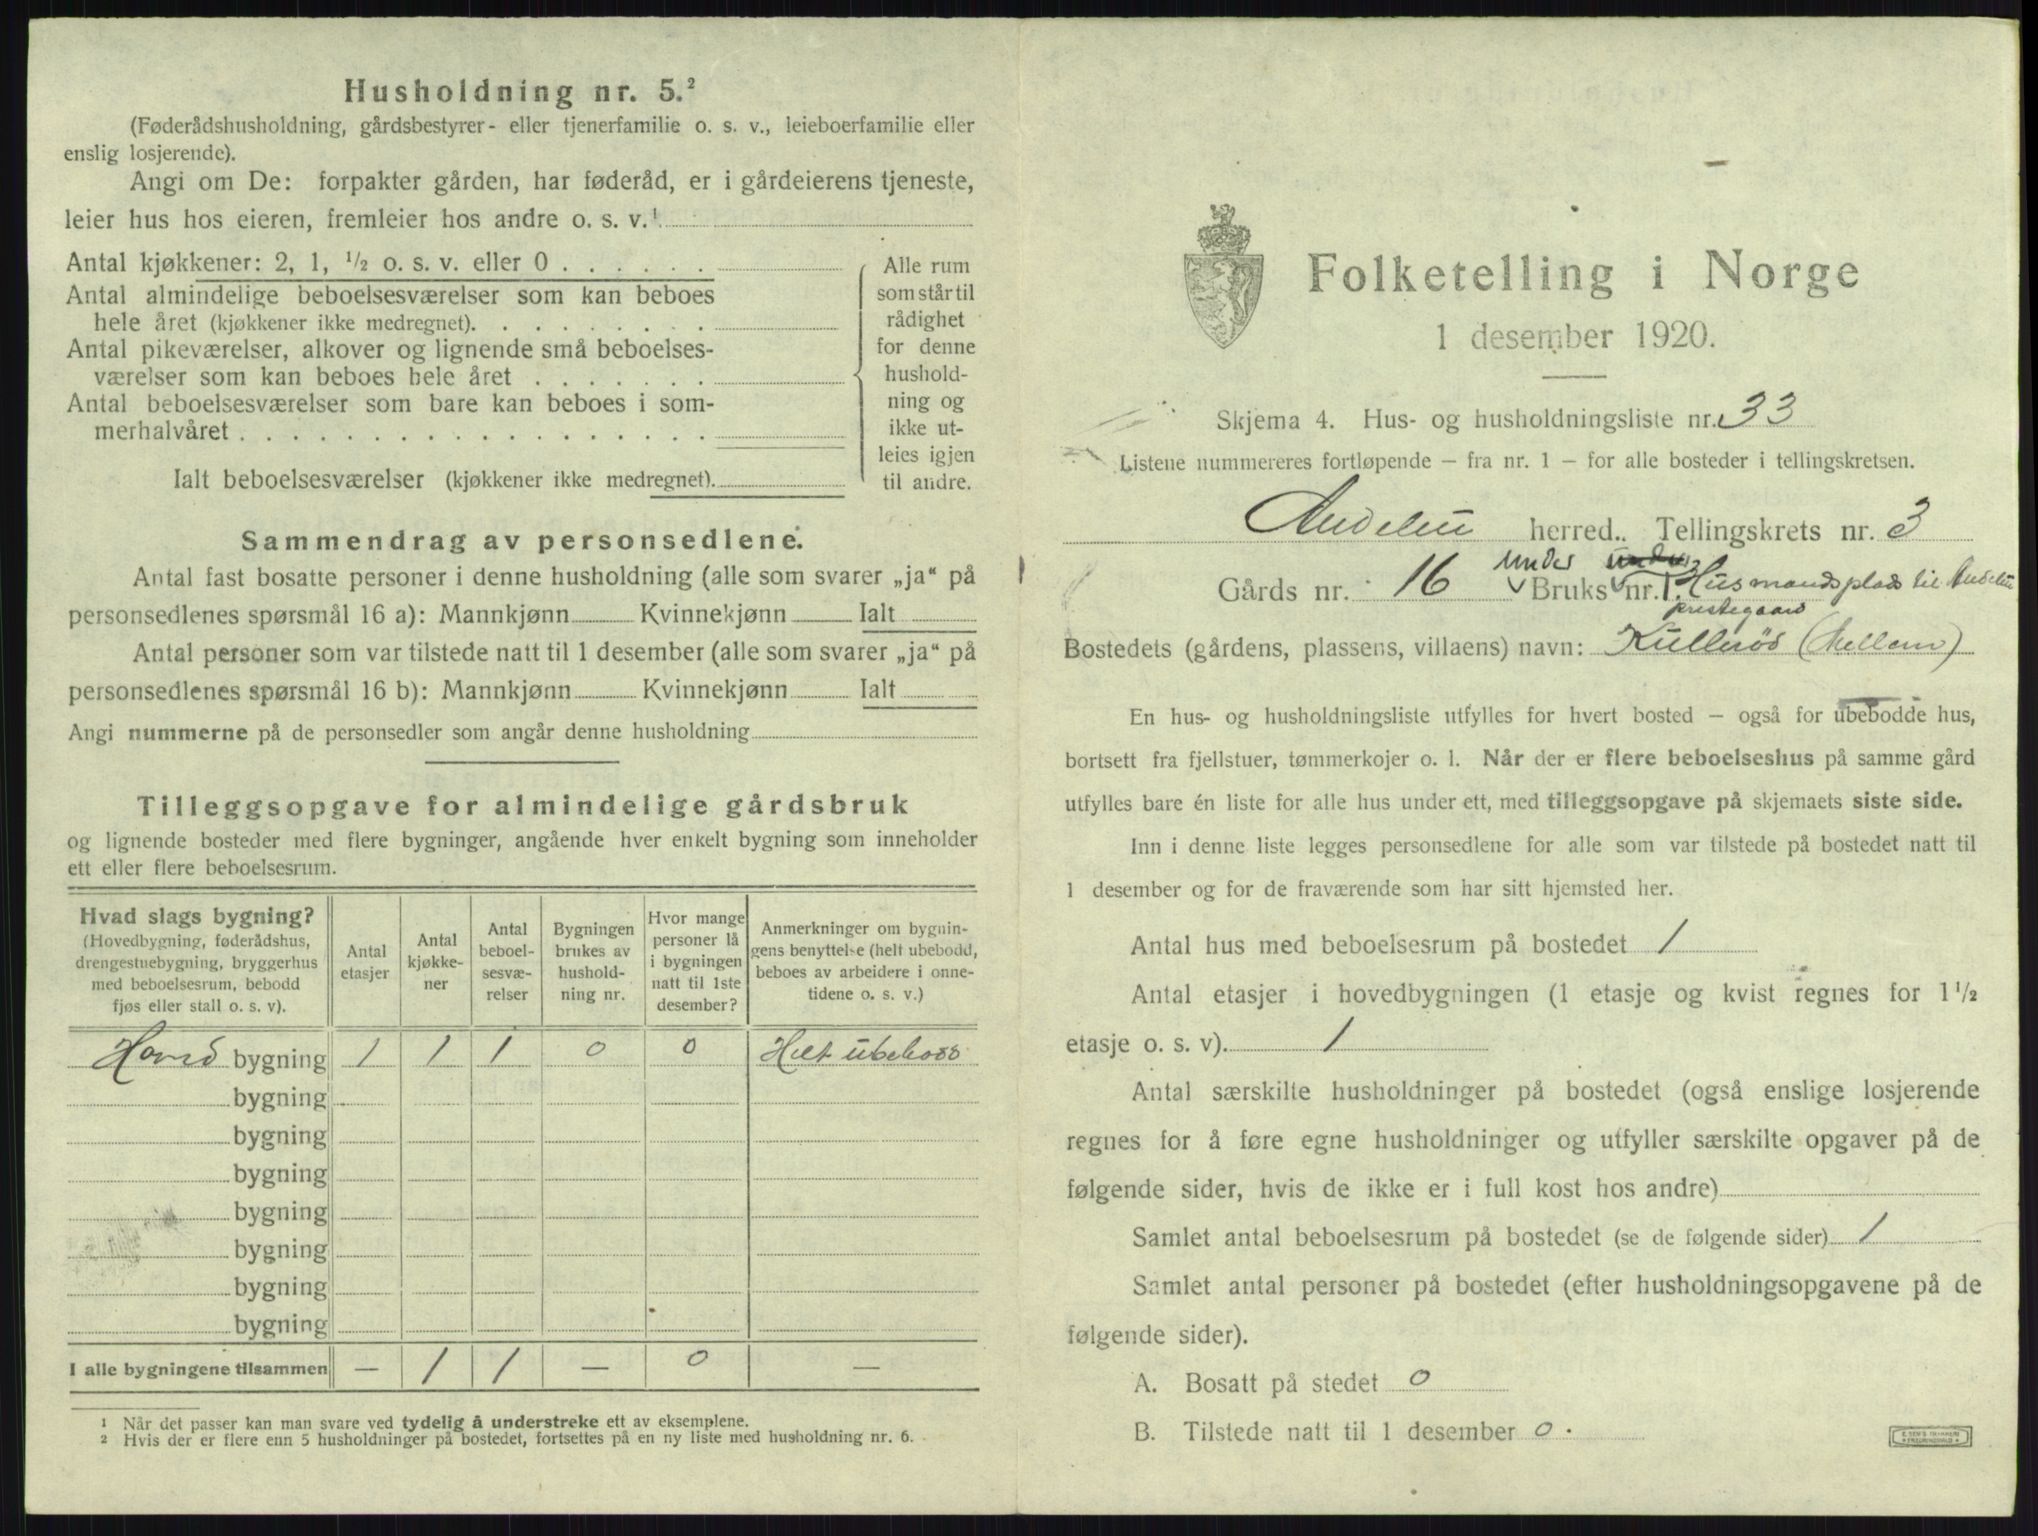 Husholdning nr. 5.²
(Føderådshusholdning, gårdsbestyrer- eller tjenerfamilie o. s. v., leieboerfamilie eller
enslig losjerende).
Angi om De: forpakter gården, har føderåd, er i gårdeierens tjeneste,
leier hus hos eieren, fremleier hos andre o. s. v.¹
Antal kjøkkener: 2, 1, ½ o. s. v. eller 0 . . . . . .
Antal almindelige beboelsesværelser som kan beboes
hele året (kjøkkener ikke medregnet). . . . . . . . .
Antal pikeværelser, alkover og lignende små beboelses-
værelser som kan beboes hele året . . . . . . .
Antal beboelsesværelser som bare kan beboes i som-
merhalvåret . . . . . . . . . . . . . . . . . .
Ialt beboelsesværelser (kjøkkener ikke medregnet).
Alle rum
som står til
rådighet
for denne
hushold-
ning og
ikke ut-
leies igjen
til andre.
Sammendrag av personsedlene.
Antal fast bosatte personer i denne husholdning (alle som svarer „ja“ på
personsedlenes spørsmål 16 a): Mannkjønn Kvinnekjønn Ialt
Antal personer som var tilstede natt til 1 desember (alle som svarer „ja“ på
personsedlenes spørsmål 16 b): Mannkjønn Kvinnekjønn Ialt
Angi nummerne på de personsedler som angår denne husholdning
Tilleggsopgave for almindelige gårdsbruk
og lignende bosteder med flere bygninger, angående hver enkelt bygning som inneholder
ett eller flere beboelsesrum.
Hvad slags bygning?
(Hovedbygning, føderådshus,
drengestuebygning, bryggerhus
med beboelsesrum, bebodd
fjøs eller stall o. s. v).
Antal
etasjer
Antal
kjøkke-
ner
Antal
beboel-
sesvæ-
relser
Bygningen
brukes av
hushold-
ning nr.
Hvor mange
personer lå
i bygningen
natt til 1ste
desember?
Anmerkninger om bygnin-
gens benyttelse (helt ubebodd,
beboes av arbeidere i onne-
tidene o. s. v.)
Hoved bygning 1 1 1 0 0 Helt ubebodd
bygning
bygning
bygning
bygning
bygning
bygning
bygning
I alle bygningene tilsammen — 1 1 — 0 —
¹ Når det passer kan man svare ved tydelig å understreke ett av eksemplene.
² Hvis der er flere enn 5 husholdninger på bostedet, fortsettes på en ny liste med husholdning nr. 6.
Folketelling i Norge
1 desember 1920.
Skjema 4. Hus- og husholdningsliste nr. 33
Listene nummereres fortløpende – fra nr. 1 – for alle bosteder i tellingskretsen.
Andebu herred. Tellingskrets nr. 3
under under
Gårds nr. 16 Bruks nr. 1. Husmandsplads til Andebu
prestegaard
Bostedets (gårdens, plassens, villaens) navn: Kullerød (Mellem)
En hus- og husholdningsliste utfylles for hvert bosted – også for ubebodde hus,
bortsett fra fjellstuer, tømmerkojer o. l. Når der er flere beboelseshus på samme gård
utfylles bare én liste for alle hus under ett, med tilleggsopgave på skjemaets siste side.
Inn i denne liste legges personsedlene for alle som var tilstede på bostedet natt til
1 desember og for de fraværende som har sitt hjemsted her.
Antal hus med beboelsesrum på bostedet 1
Antal etasjer i hovedbygningen (1 etasje og kvist regnes for 1½
etasje o. s. v). 1
Antal særskilte husholdninger på bostedet (også enslige losjerende
regnes for å føre egne husholdninger og utfyller særskilte opgaver på de
følgende sider, hvis de ikke er i full kost hos andre)
Samlet antal beboelsesrum på bostedet (se de følgende sider) 1
Samlet antal personer på bostedet (efter husholdningsopgavene på de
følgende sider).
A. Bosatt på stedet 0
B. Tilstede natt til 1 desember 0.